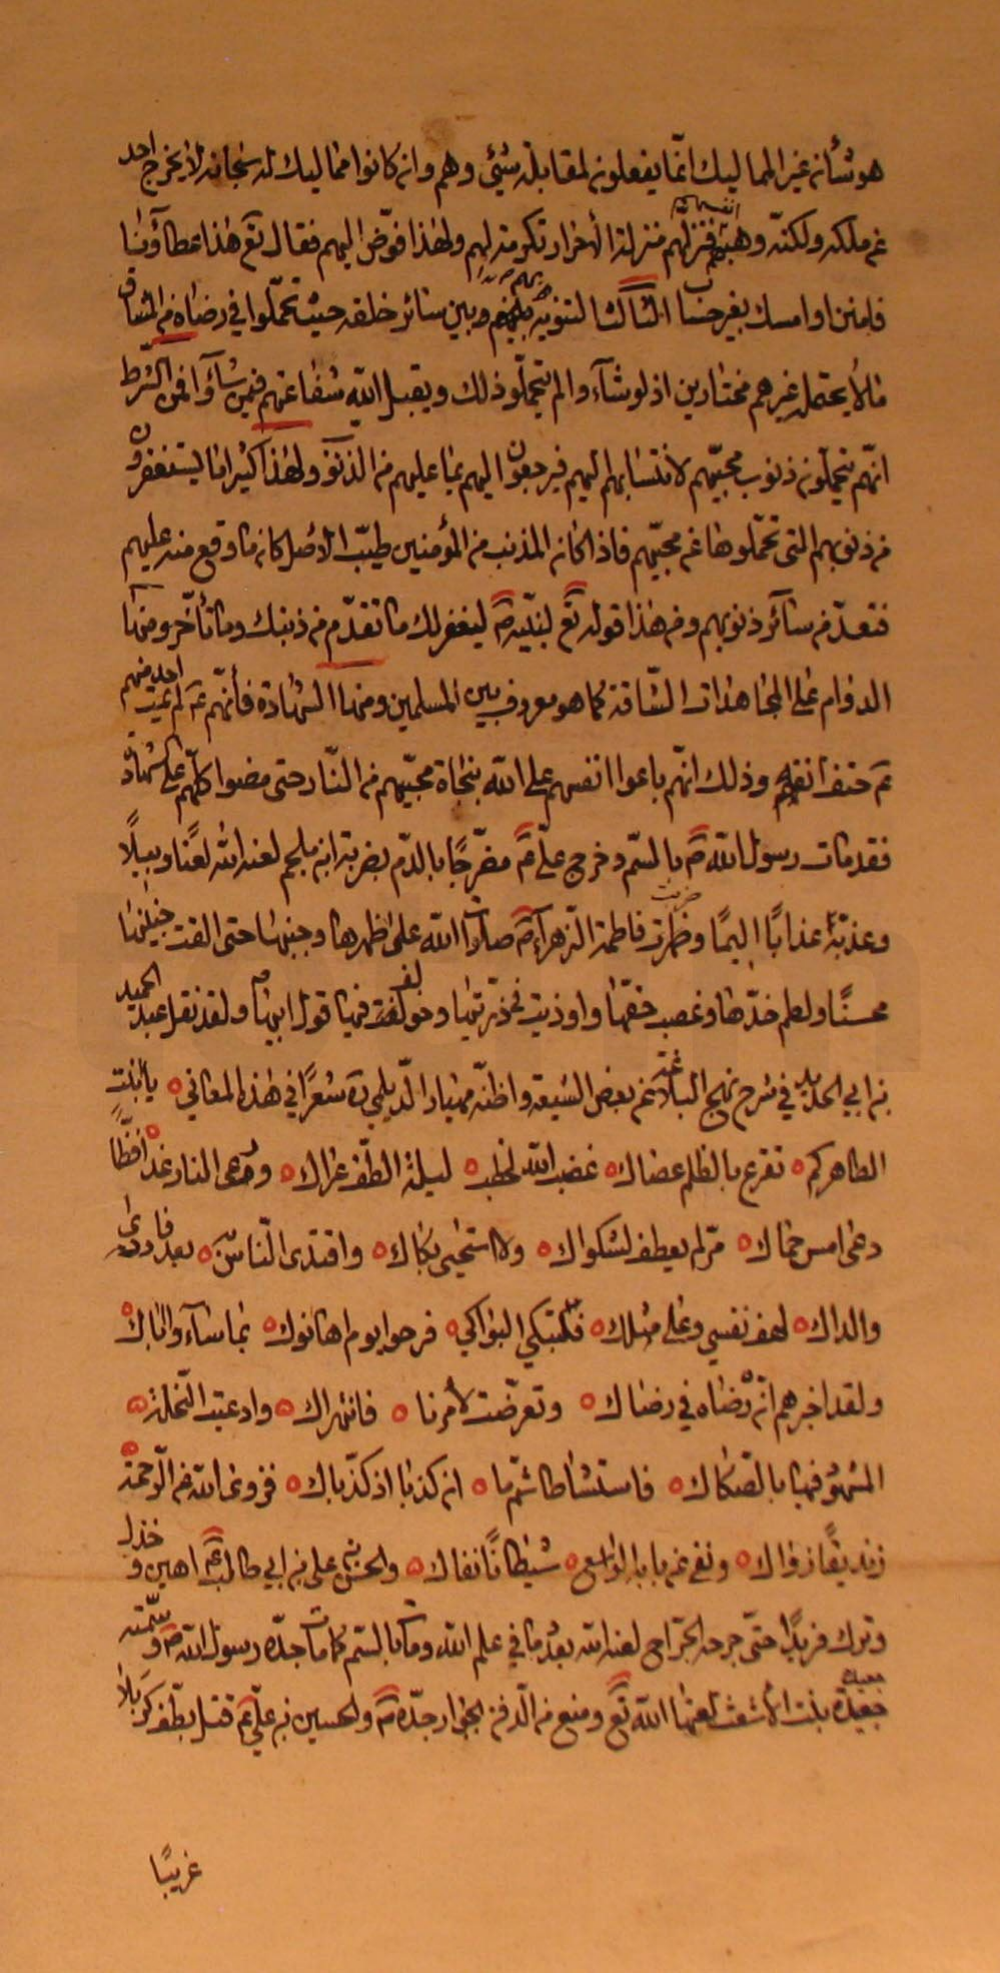 هو شأن غير المماليك انّما يفعلون لمقابلة شيئ وهم وان كانوا مماليك له سبحانه لا يخرج احد
عن ملكه ولكنّه وهبهم انفسهم فنزلهم منزلة الأحرار تكرمة لهم ولهذا فوّض اليهم فقال تع هذا عطاؤنا
فامنن او امسك بغير حساب الثالث التنويه بهم بينهم وبين سائر خلقه حيث تحمّلوا في رضاه من المشاق
ما لا يحتمله غيرهم مختارين اذ لو شاء والم يتحمّلوا ذلك ويقبل الله شفاعتهم فيمن شاؤا فمن الشرط
انّهم يتحملون ذنوب محبّيهم لانتسابهم اليهم فيرجعون اليهم بما عليهم من الذنوب ولهذا كثيرا ما يستغفرون
من ذنوبهم التي تحمّلوها عن محبّيهم فاذا كان المذنب من المؤمنين طيّب الأصل كان ما وقع منه عليهم
فتعدّ من سائر ذنوبهم ومن هذا قوله تع لنبيّه ص ليغفر لك ما تقدّم من ذنبك وما تأخّر ومنها
الدوام على المجاهدات الشاقة كما هو معروف بين المسلمين ومنها الشهادة فأنّهم ع لم يمت احد منهم
ع حتف انفه وذلك انّهم باعوا انفسهم على الله بنجاة محبّيهم من النّار حتى مضوا كلّهم على الشهادة
فقد مات رسول الله ص بالسّم وخرج علي ع مضرّجًا بالدّم بضربة ابن ملجم لعنه الله لعنًا وبيلًا
وعذبه عذابًا اليمًا وضربت فاطمة الزهراء ص صلوات الله على ظهرها وجنبها حتى القت جنينها
محسنًا ولطم خدّها وغصب حقّها واوذيت في ذرّيتها وخولف فيها قول ابيها ص ولقد نقل عبد الحميد
بن ابي الحديد في شرح نهج البلاغة عن بعض الشيعة واظنّه مهيار الديلمي ره شعرًا في هذه المعاني ه يا بنت
الطاهركم ه تقرع بالظلم عصاك ه غضب الله لخطب ه ليلة الطف عراك ه ورعى النار غدا فظّا
رعى امس حماك ه مرّ لم يعطف لشكواك ه ولا استحيى بكاك ه واقتدى النّاس به ه بعد فاردى
والداك ه لهف نفسي وعلى مثلك ه فلتبكي البواكي ه فرحوا يوم اهانوك ه بما ساء اباك ه
ولقد اخبرهم انّ رضاه في رضاك ه وتعرّضت لأمرنا ه فانتهراك ه وادعيت النّحلة ه
المشهود فيها بالصكاك ه فاستشاطا ثم ما ه ان كذبا اذ كذّباك ه فزوى الله عن الرّحمة ه
زنديقًا زواك ه ونفى عن بابه الواسع ه شيطانًا نفاك ه والحسن بن علي بن ابي طالب ع اهين وخذل
وترك فريدًا حتّى جرحه الجرّاح لعنه الله بعدد ما في علم الله ومات بالسّم كما مات جدّه رسول الله ص وسمّته
جعيدة بنت الأشعث لعنها الله تع ومنع من الدفن بجوار جدّه ص والحسين بن علي ع قتل بطف كربلا
غريبًا